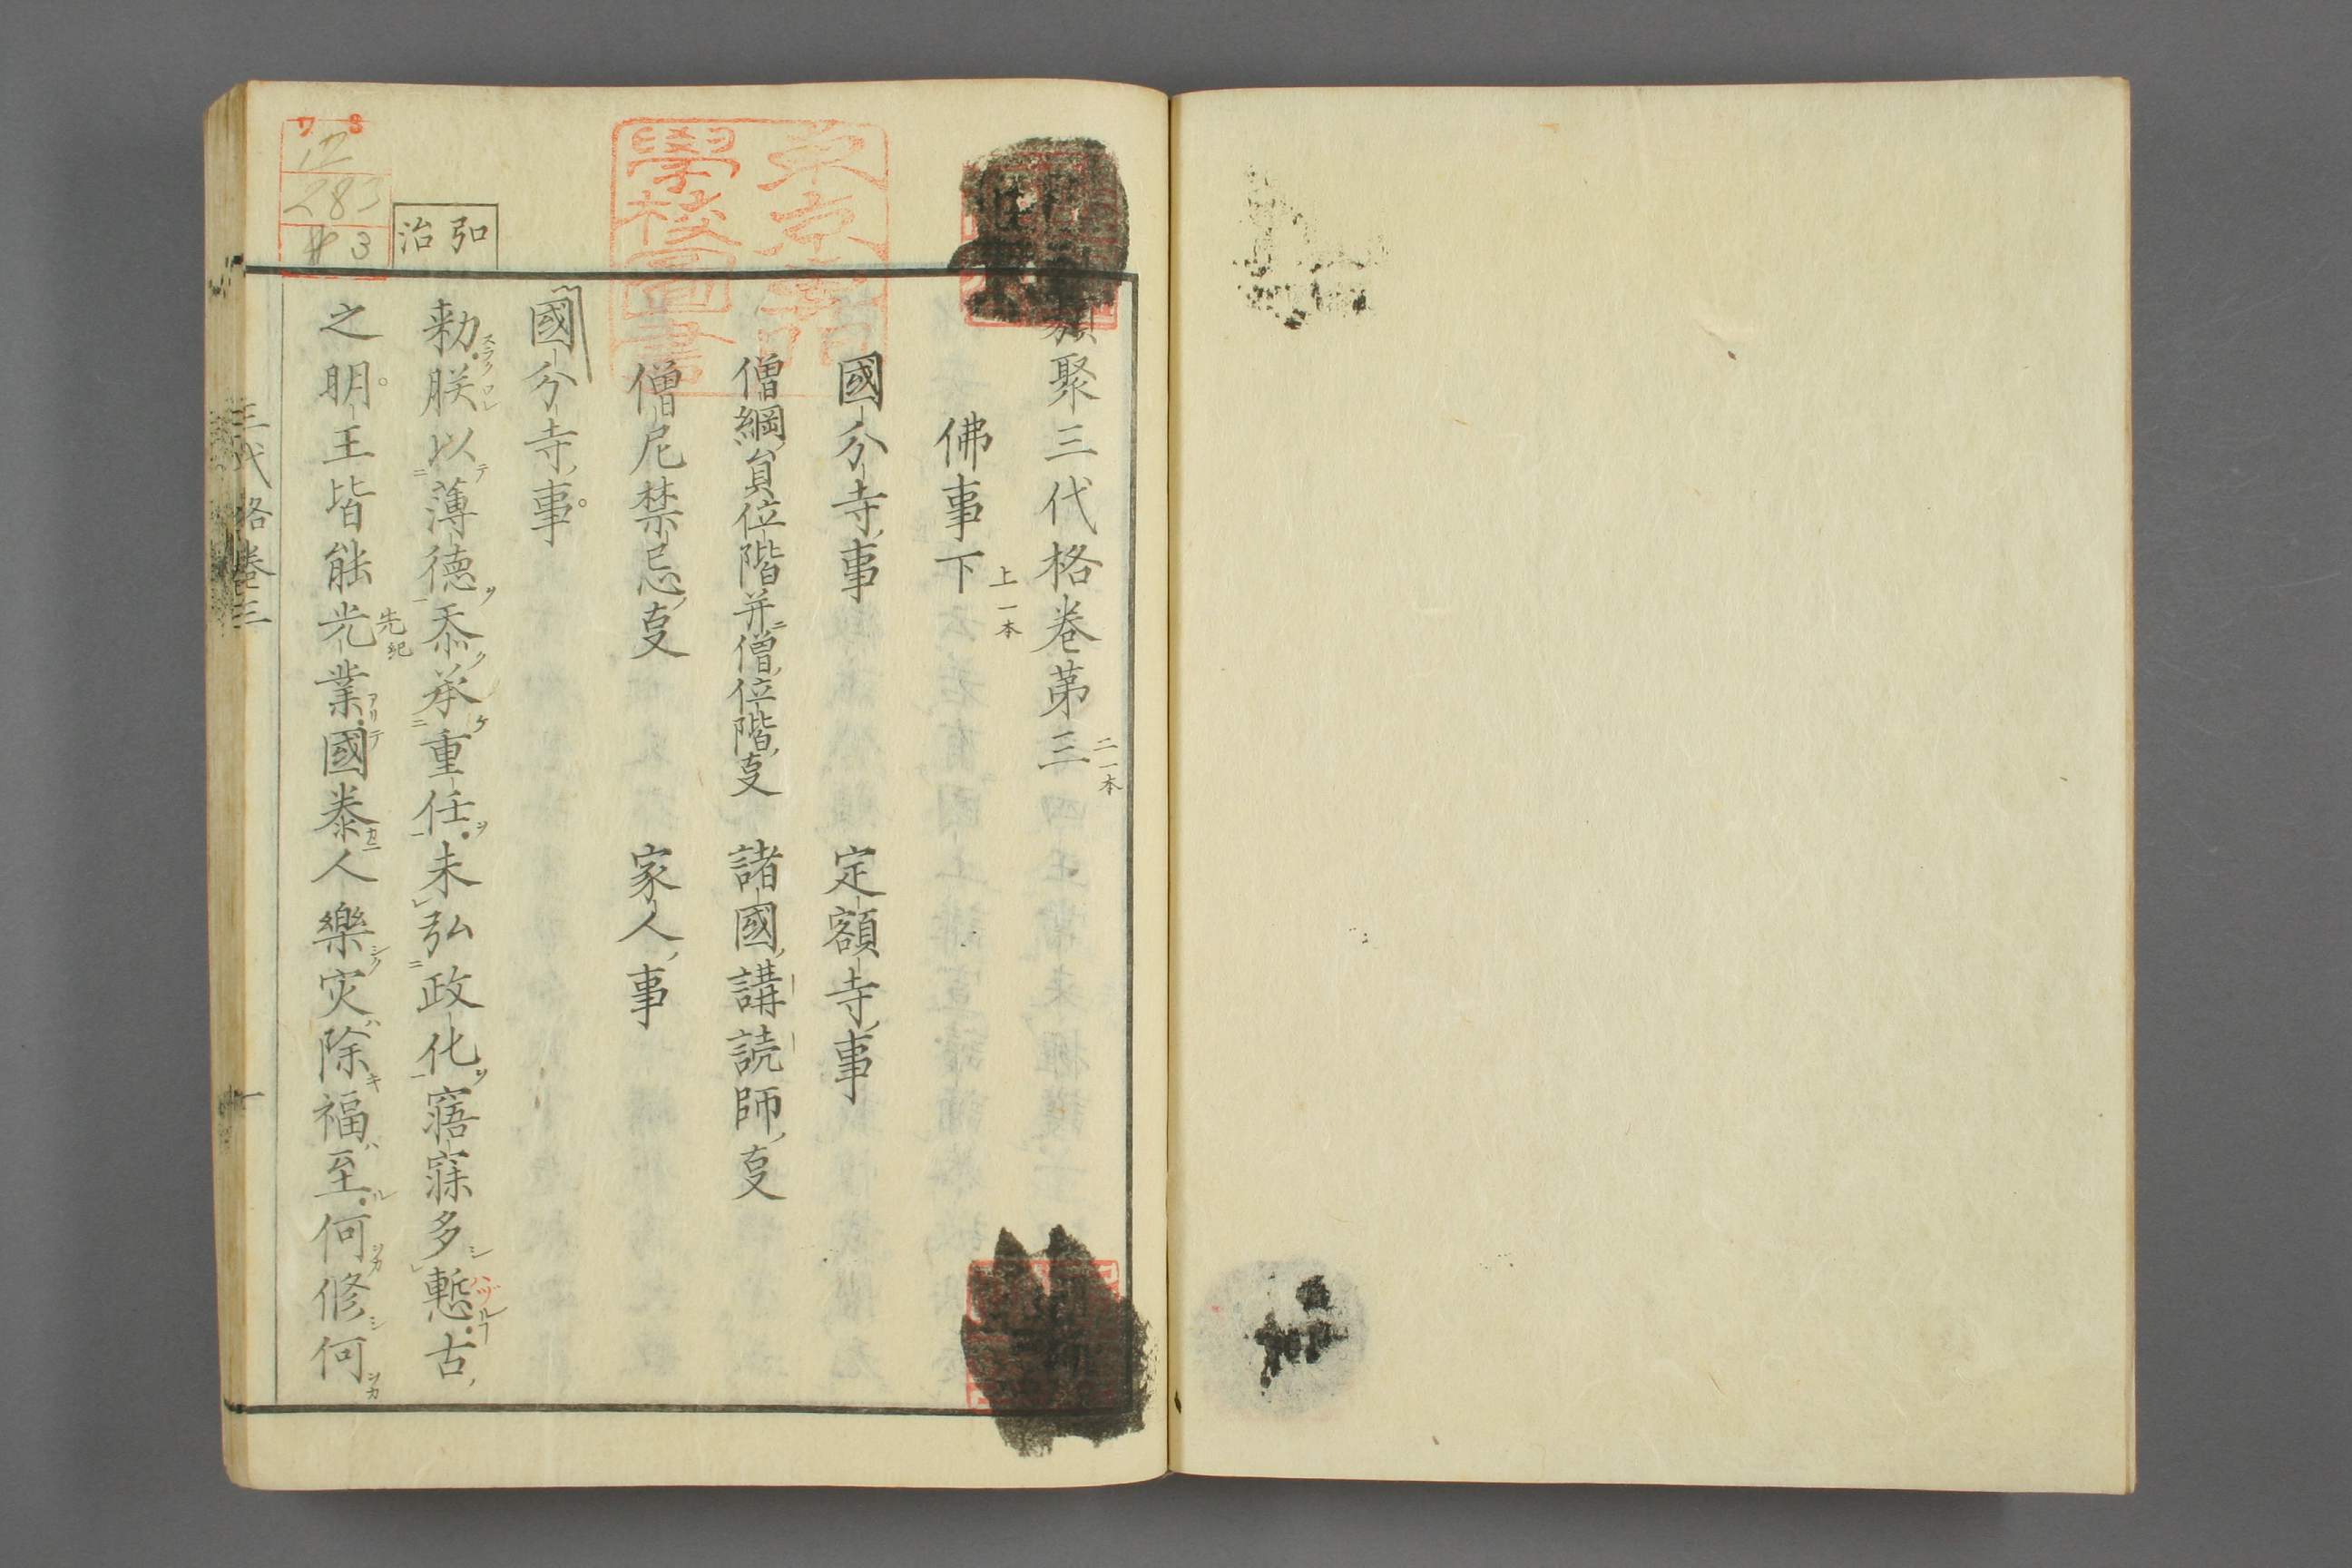 類聚三代格卷第三
二一本
佛事下
上一本
國分寺事　定額寺事
僧綱員位階并僧位階㕝　諸國講読師㕝
僧尼禁忌㕝　家人事
國分寺事
弘治
勅朕以薄德忝承重任未弘政化寤寐多慙古
之明王皆能光業國泰人樂灾除福至何修何
先紀
三代格卷三
一
東京專門學校圖書